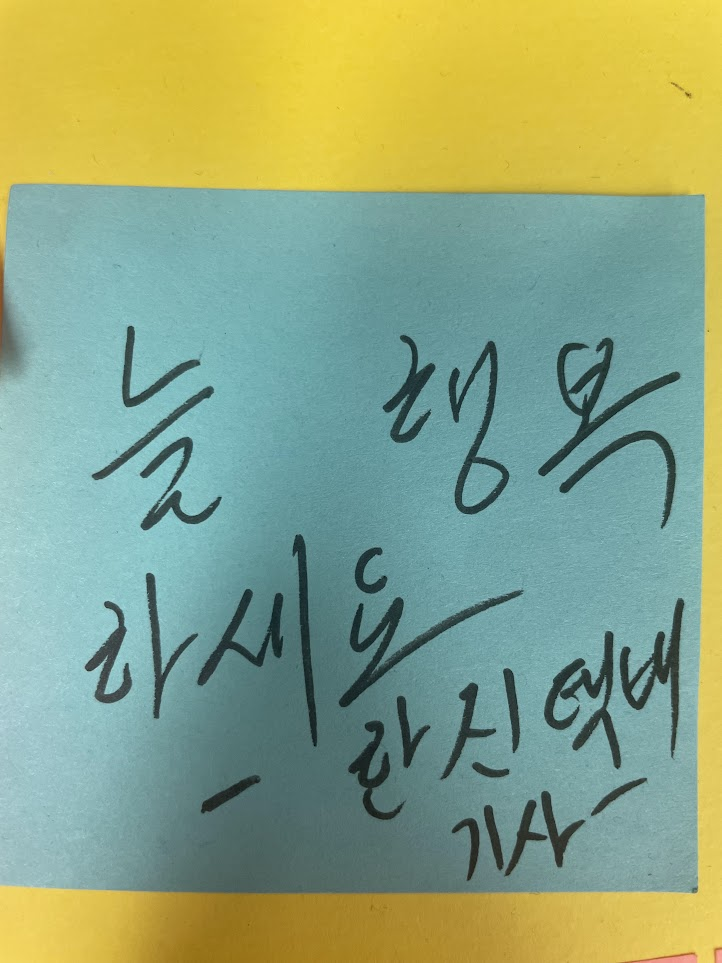 늘 행복
하세요
- 한진택배
기사 -